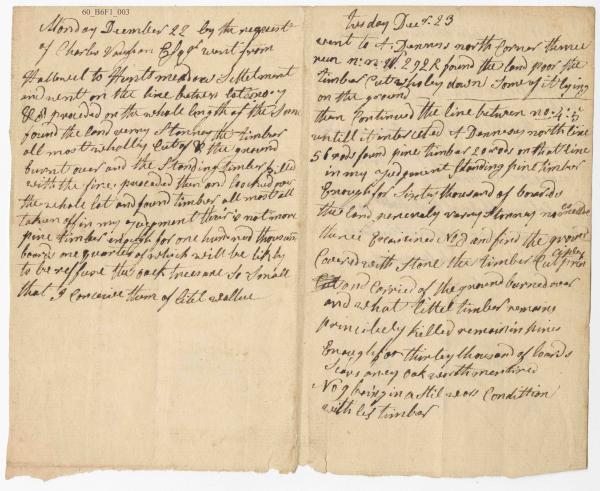 60_B6F1_003
Monday December 22 by the request
of Charles Vaughan Esqr went from
Hallowel to Hunts meadow Settelment
and went on the line betwen
& 8 preceded on the whole length of the same
found the land verry Stoney the timber
all most wholly Cut of & the ground
burnt over and the Standing timber killed
with the fire, preceded then and looked over
the whole lot and found timber all most all
taken off in my Judgment thair is not more
pine timber enough for one hundred thousan
boards one quarter of which will be likly
to be reffuse the oack trees are So Small
that I Conceive them of litel vallue
Tuesday Decr. 23
went to A Denness north Corner thence
run n: n: W. 292 R found the land poor the
timber Cut wholey down Some of it lying
on the ground
then Continued the line between no: 4: & 5
untill it intersected A Dennessy north line
56 rods found pine timber 20 rods on that line
in my Judgement Standing pine timber
Enough for Sixty thousand of boards
the land generely varry Stoney no
thence Exsamined No 9 and find the ground
Coverd with Stone the timber Cut
and Carried of the ground burned over
and what littel timber remains
princibely killed remains in pines
Enough for thirtey thousand of boards
Scars aney oak worth mentined
No 9 being in a Stil wors Condittion
with les timber